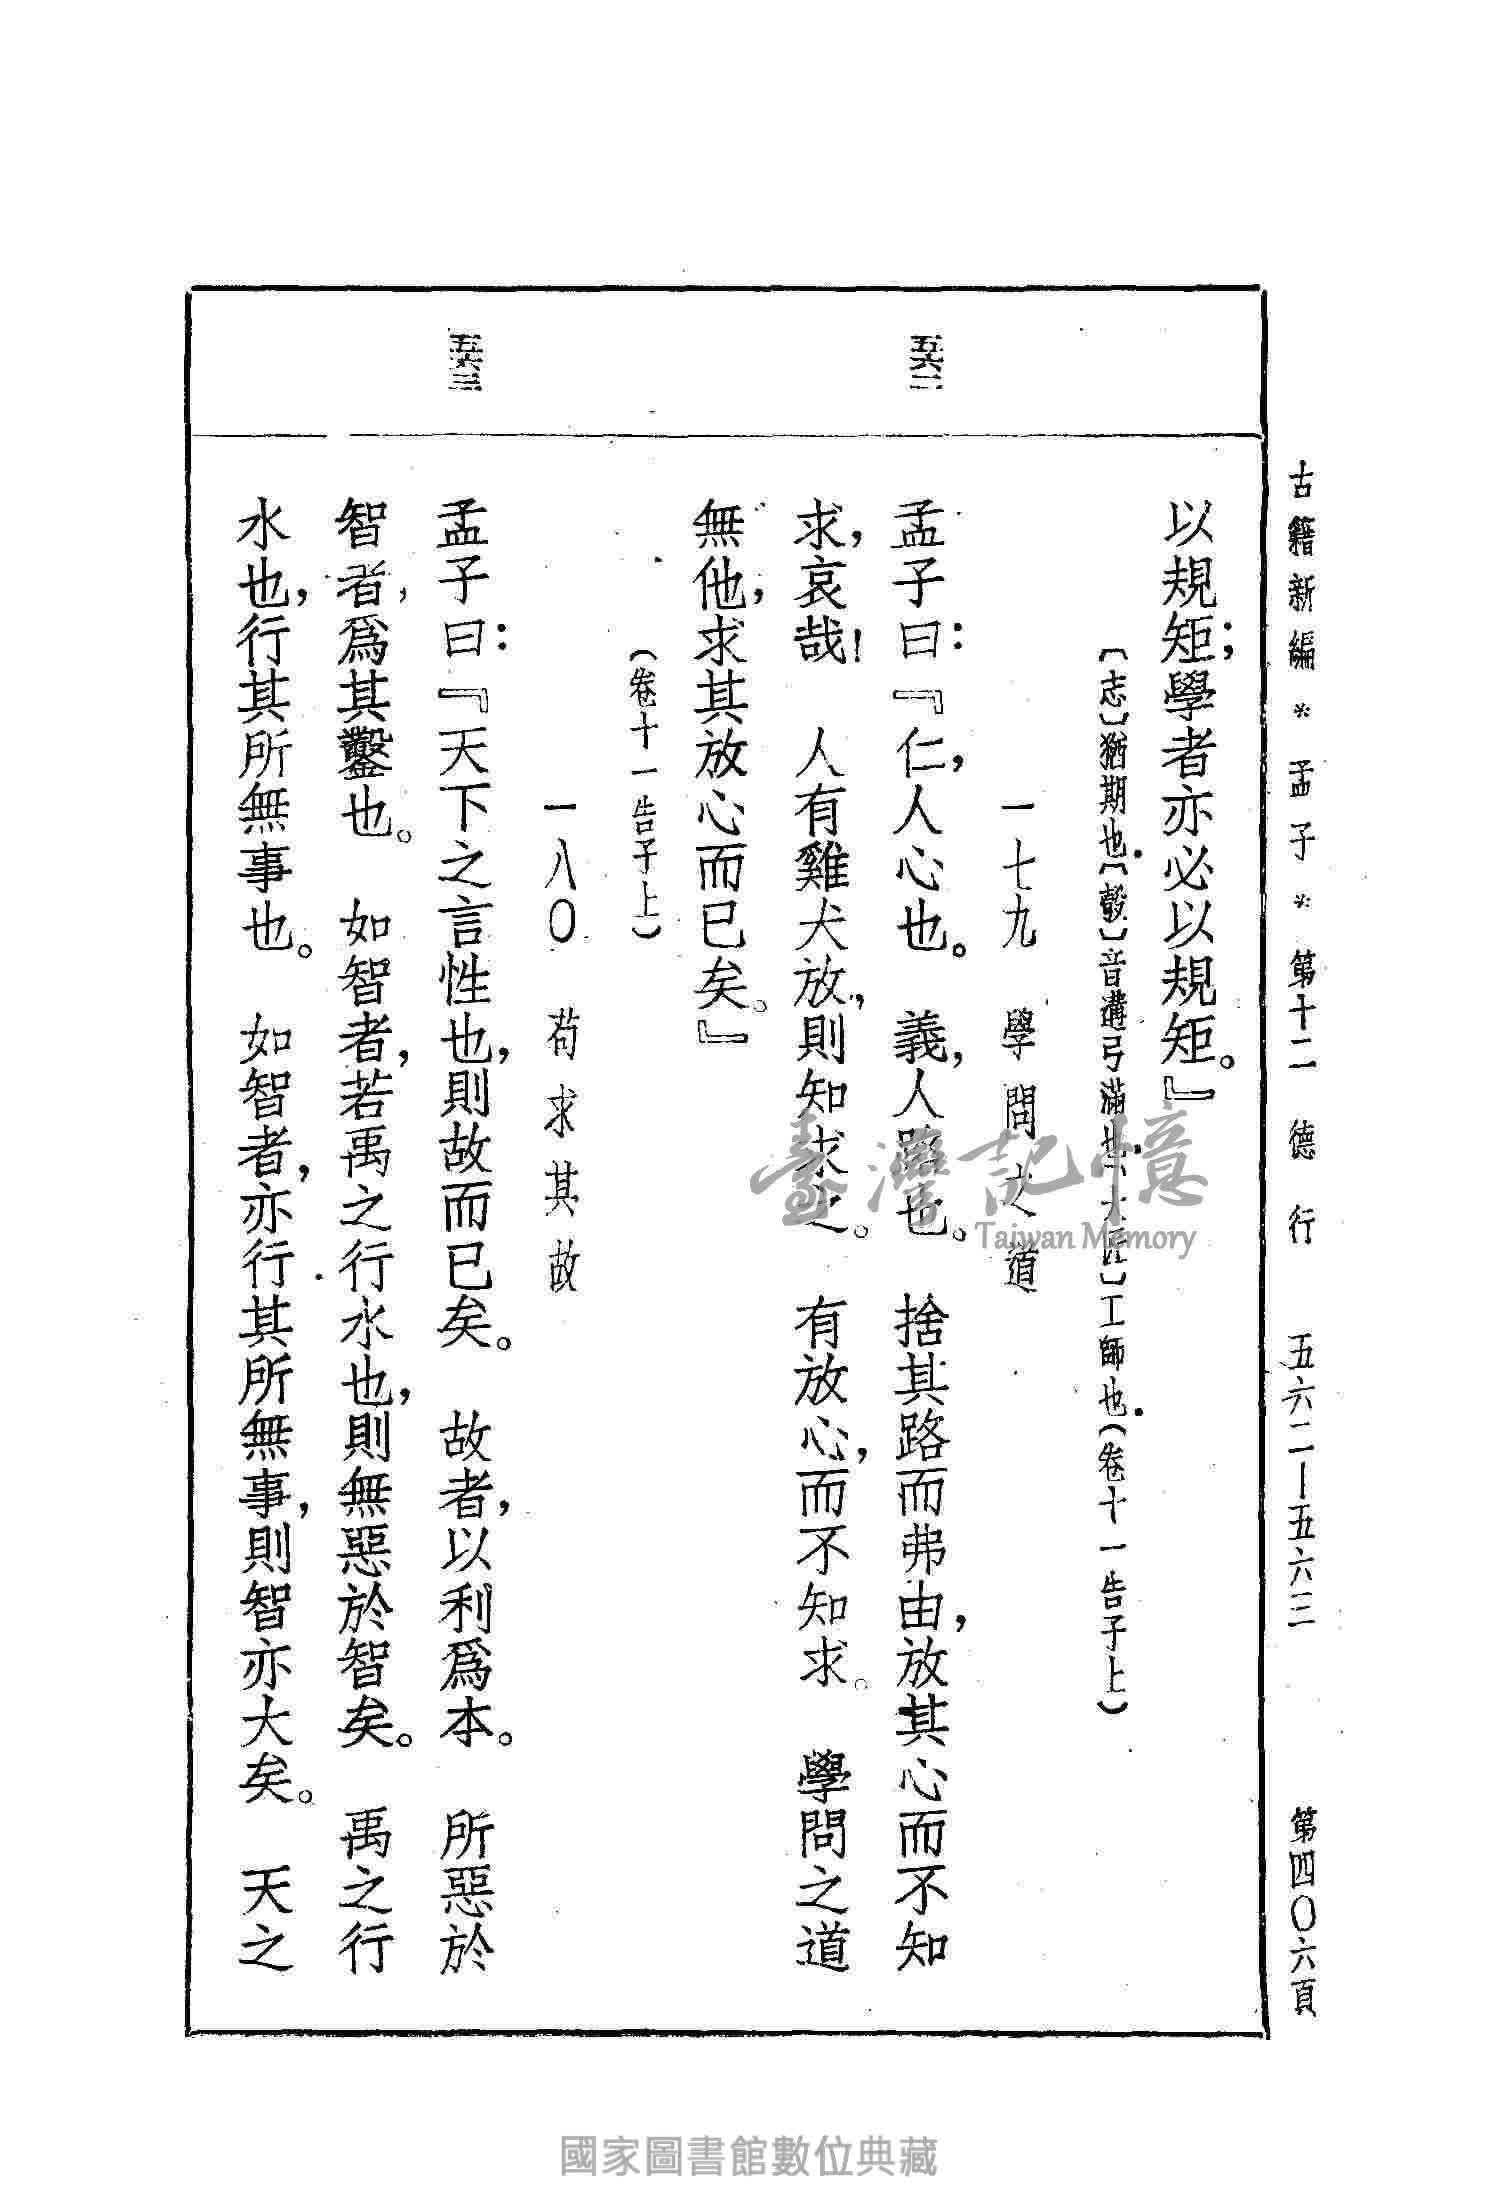 古籍新編*孟子*第十二 德行 五六二—五六三 第四〇六頁
五六二
五六三
以規矩；學者亦必以規矩。』
〔志〕猶期也。〔彀〕音遘弓滿也。〔大匠〕工師也。（卷十一告子上）
一七九 學問之道
孟子曰：『仁，人心也。 義，人路也。 捨其路而弗由，放其心而不知
求，哀哉！ 人有雞犬放，則知求之。 有放心，而不知求。 學問之道
無他，求其放心而已矣。』
（卷十一告子上）
一八〇 苟求其故
孟子曰：『天下之言性也，則故而已矣。 故者，以利爲本。 所惡於
智者，爲其鑿也。 如智者，若禹之行水也，則無惡於智矣。 禹之行
水也，行其所無事也。 如智者，亦行其所無事，則智亦大矣。 天之
臺灣記憶
Taiwan Memory
國家圖書館數位典藏